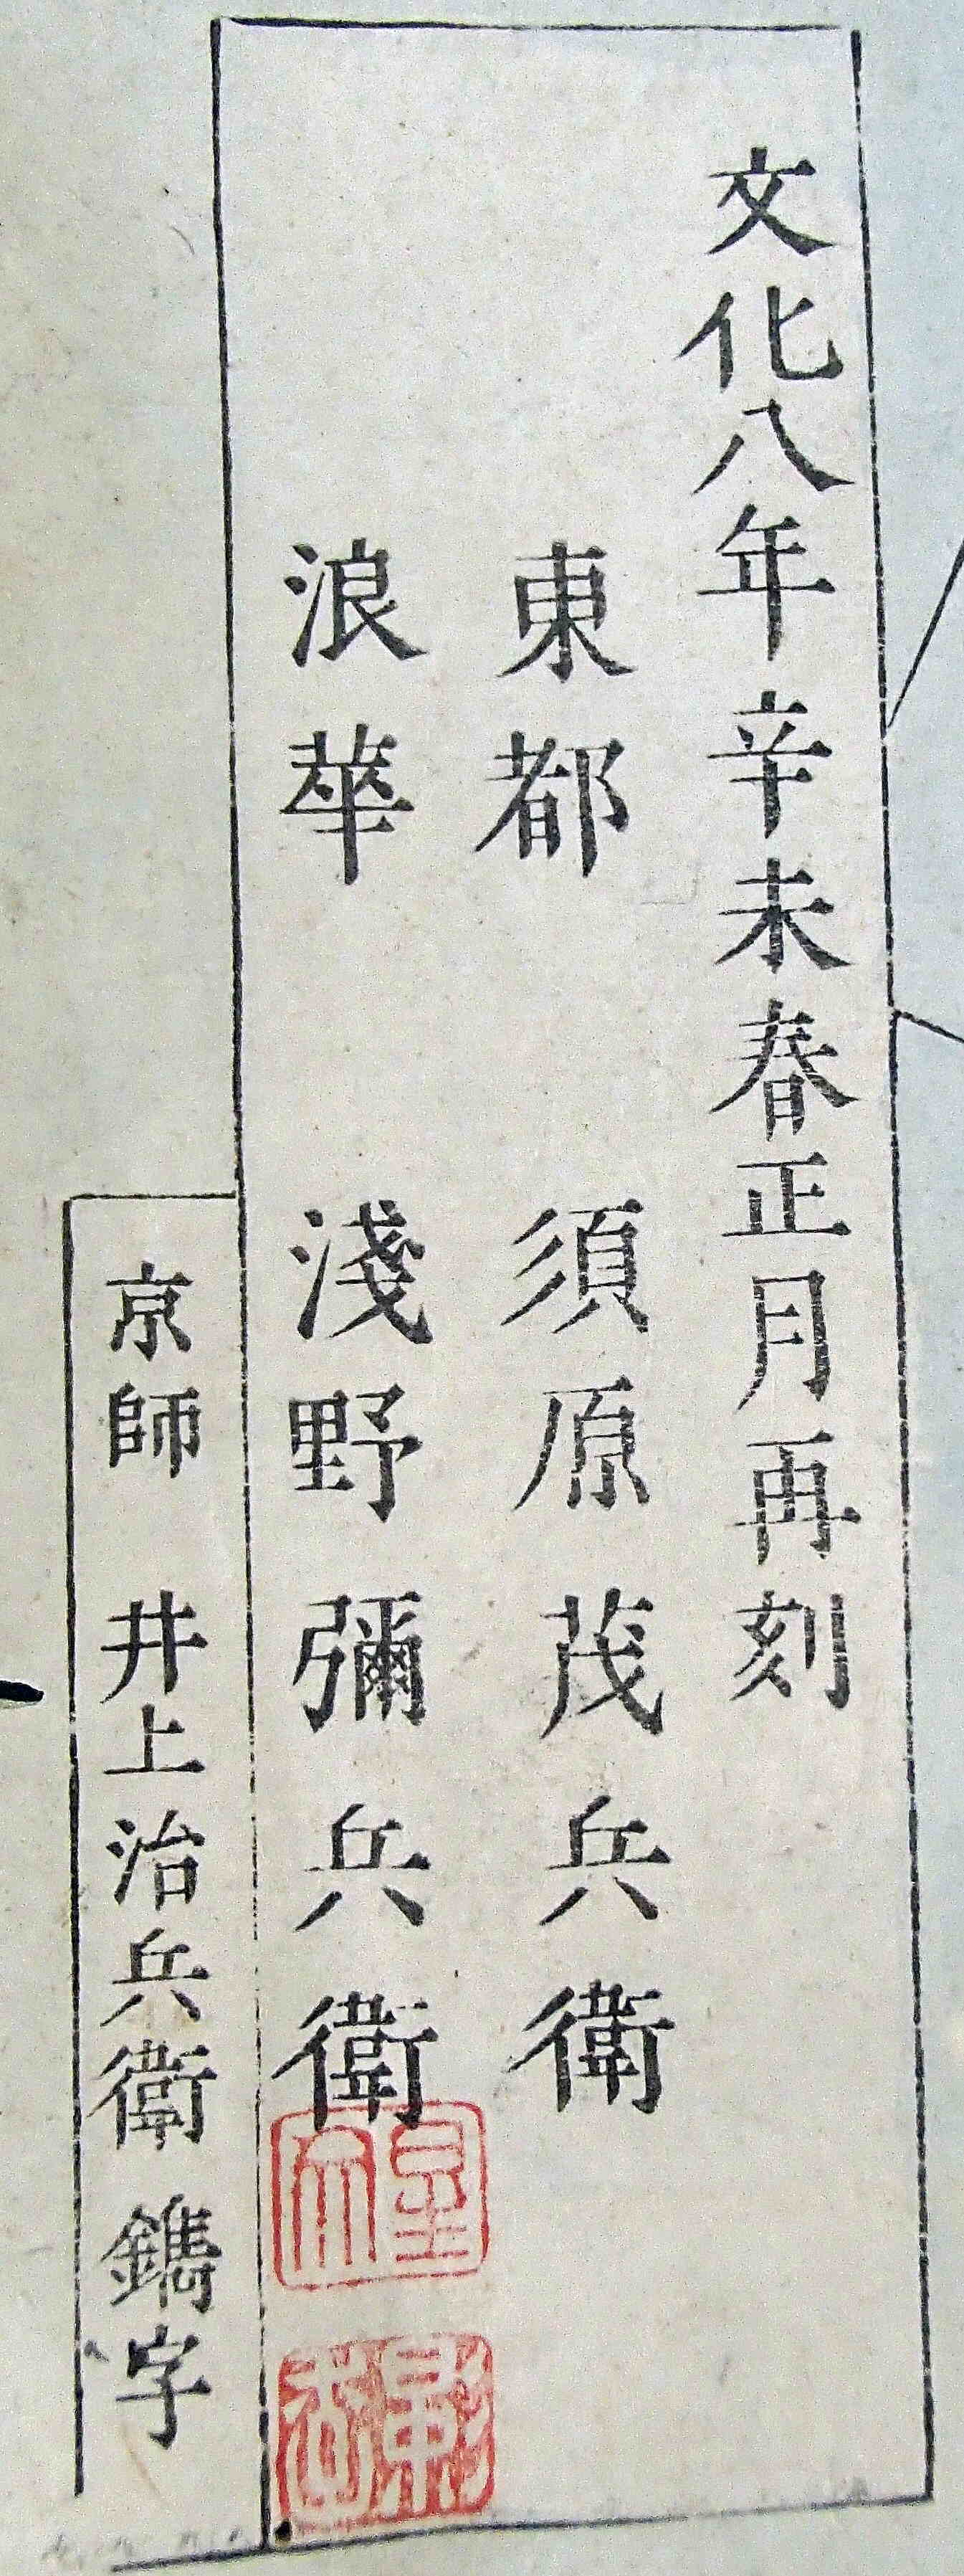 文化八年辛未春正月再刻
東都 須原茂兵衞
浪華 淺野彌兵衞
京師 井上治兵衞鐫字